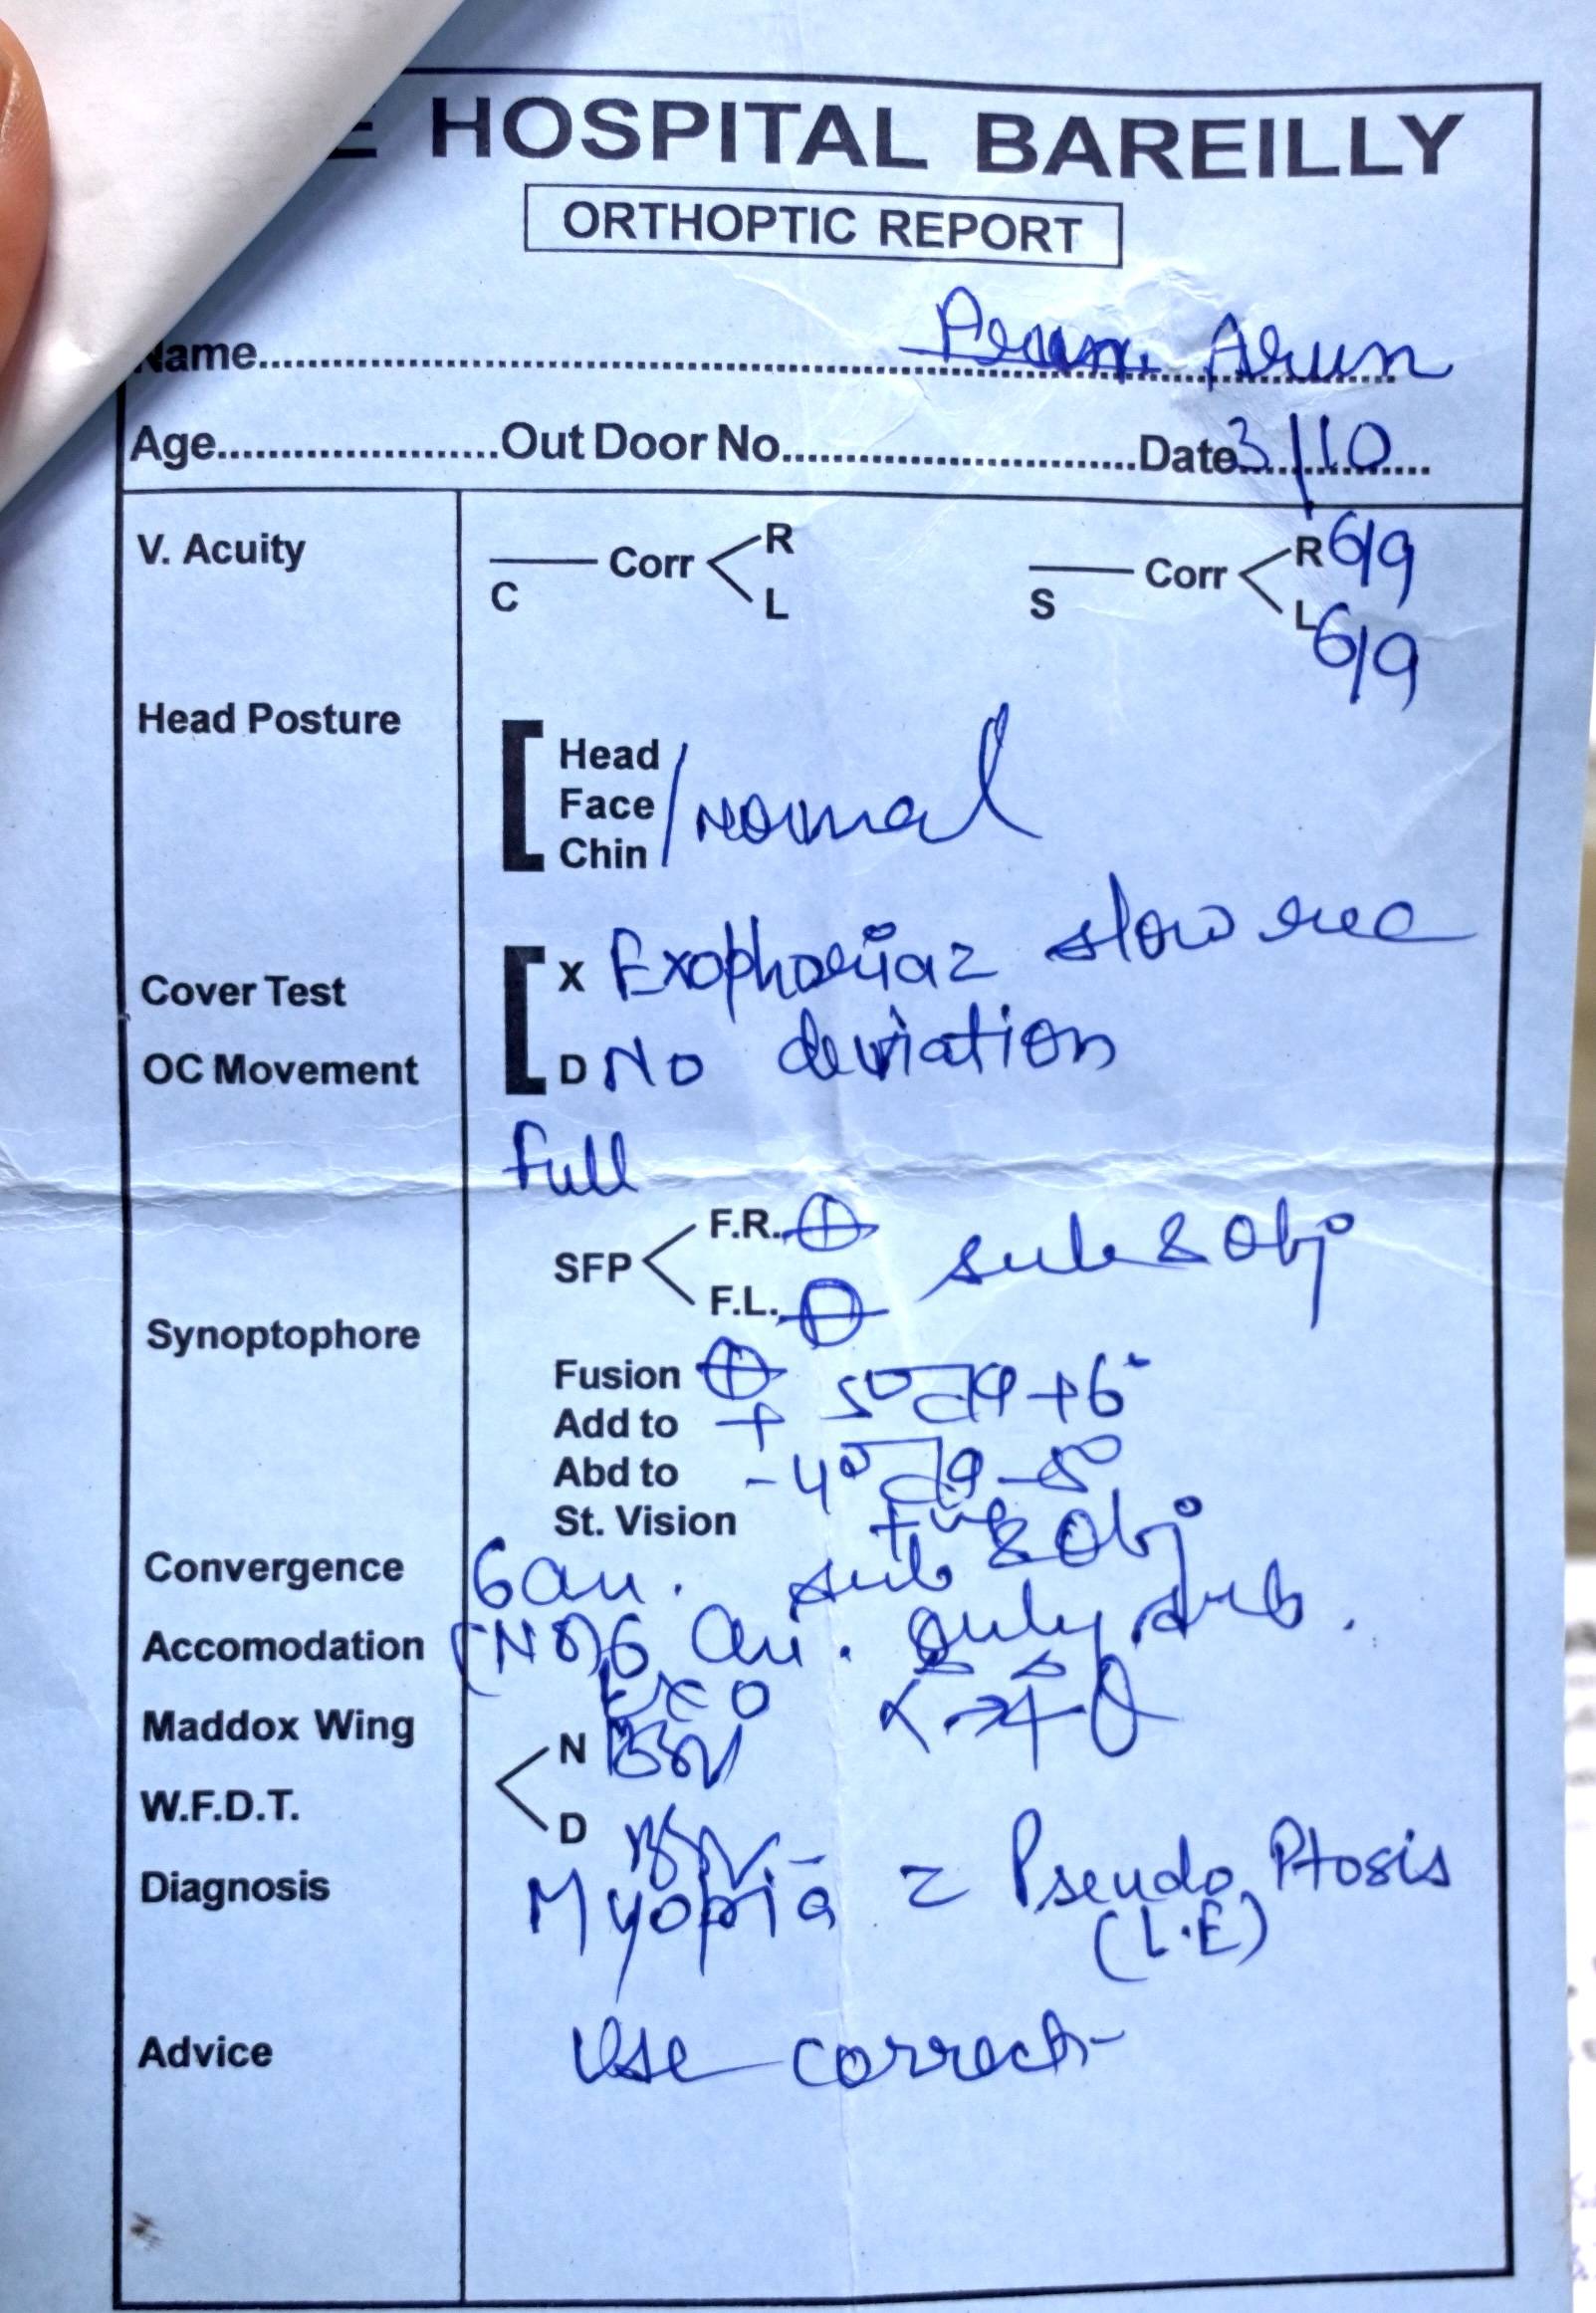 E HOSPITAL BAREILLY
ORTHOPTIC REPORT
Name.......... Arun
Age..........Out Door No..........Date 3/10
V. Acuity C Corr R L S Corr R 6/9 L 6/9
Head Posture Head Face Chin / normal
Cover Test X Exophoria slow rec
OC Movement D No deviation
Full
Synoptophore SFP F.R. ⊕ F.L. ⊕ sub & Obj
Fusion ⊕
Add to + 5° +6°
Abd to -4° -5°
St. Vision +ve sub & Obj
Convergence 6 cm. sub & Obj
Accomodation (N8) 6 cm. only sub.
Maddox Wing Exo
W.F.D.T. N BSV
D BSV
Diagnosis Myopia Pseudo Ptosis
(L.E)
Advice Use correct-